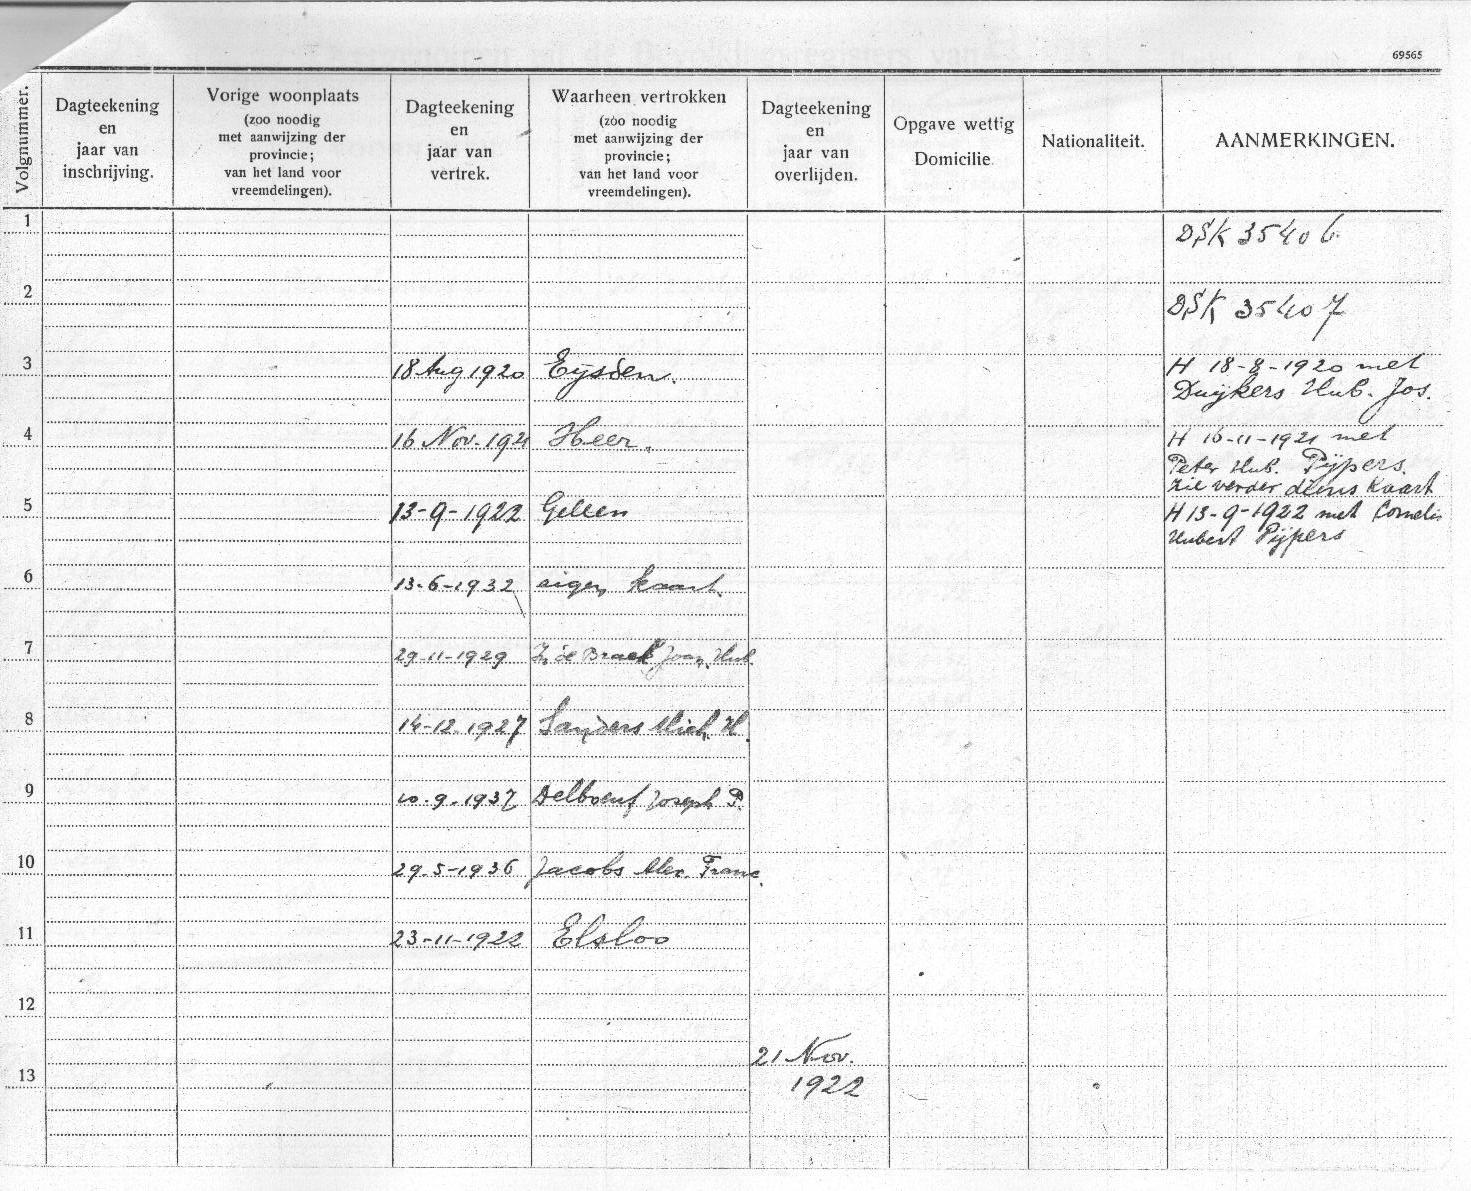 69565
Volgnummer.
Dagteekening
en
jaar van
inschrijving.
Vorige woonplaats
(zoo noodig
met aanwijzing der
provincie;
van het land voor
vreemdelingen).
Dagteekening
en
jaar van
vertrek.
Waarheen vertrokken
(zóo noodig
met aanwijzing der
provincie;
van het land voor
vreemdelingen).
Dagteekening
en
jaar van
overlijden.
Opgave wettig
Domicilie
Nationaliteit.
AANMERKINGEN.
1
DSK 35406
2
DSK 35407
3 18 Aug 1920 Eijsden. H 18-8-1920 met
Duijkers Hub. Jos.
4 16 Nov. 1921 Heer. H 16-11-1921 met
Peter Hub. Pijpers.
zie verder diens kaart
5 13-9-1922 Geleen H 13-9-1922 met Cornelis
Hubert Pijpers
6 13-6-1932 eigen kaart.
7 29-11-1929 Braek Joan. Hub.
8 14-12-1927 Sanders Mich. H.
9 10-9-1937 Delboeuf Joseph P.
10 29-5-1936 Jacobs Alex. Franc.
11 23-11-1922 Elsloo
12
21 Nov.
13 1922